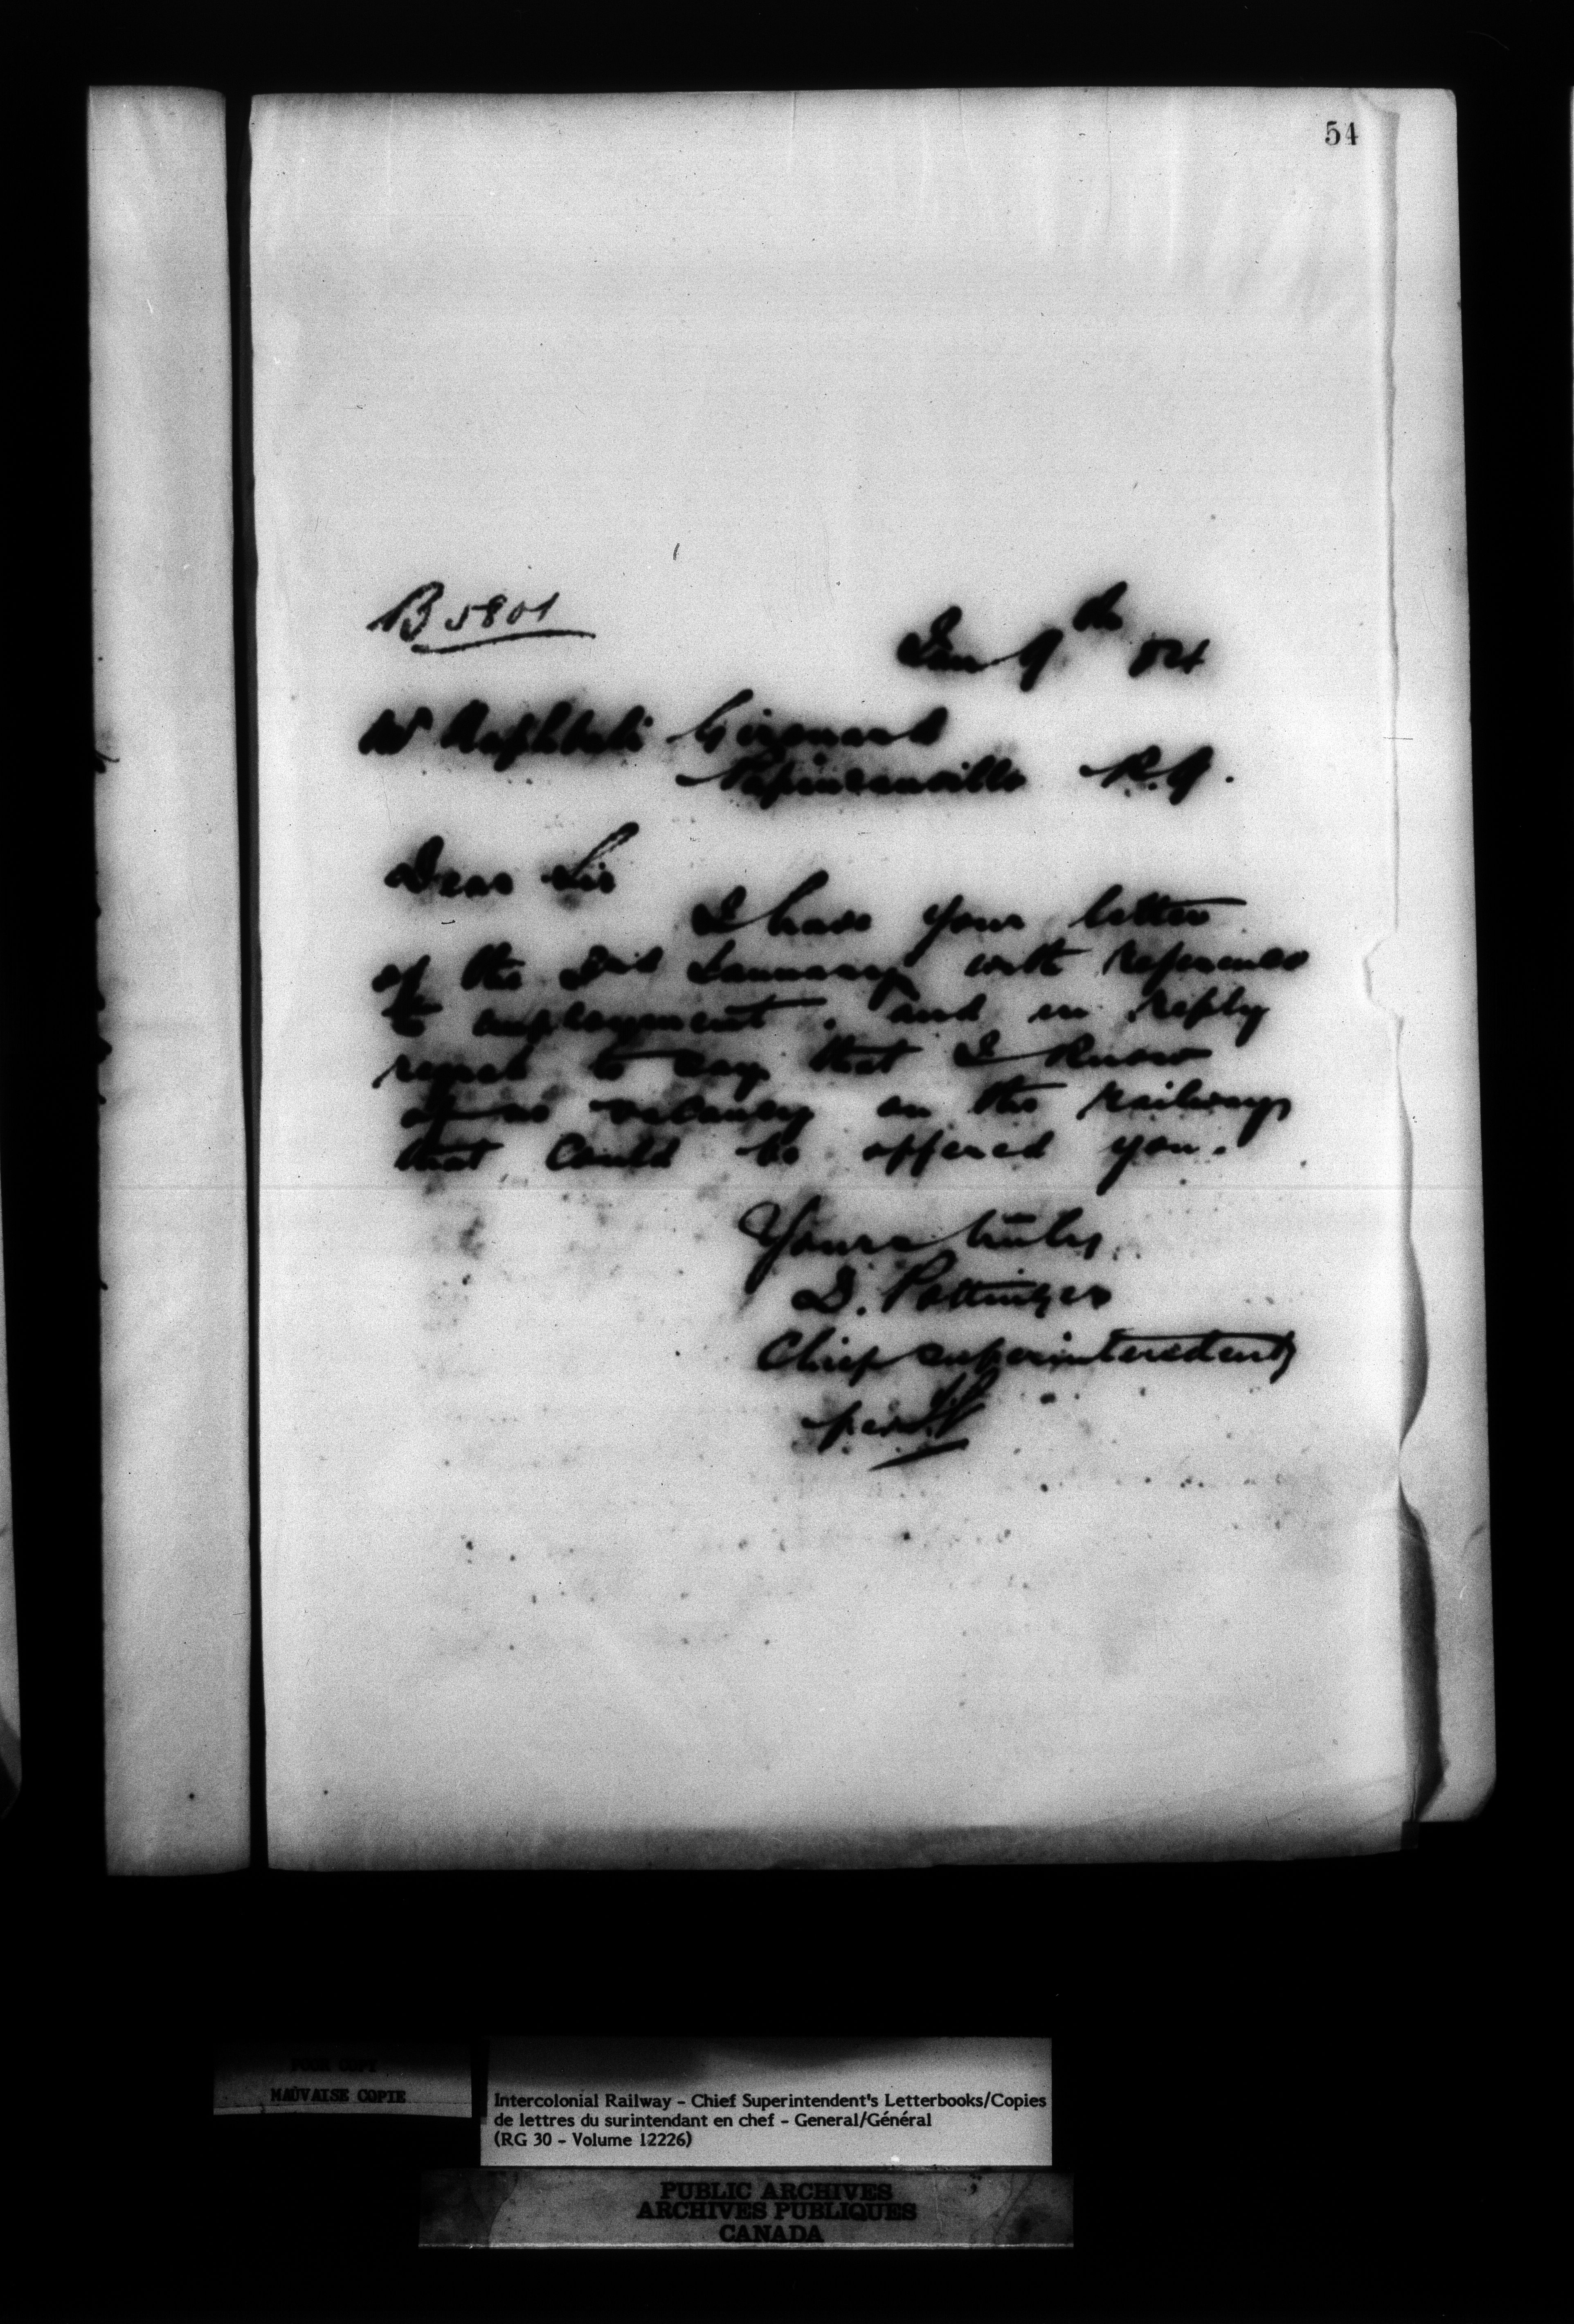 54
B 5801
Jan 9th 84
Girouard
Papineauville P.Q.
Dear Sir
I have your letter
of the 3rd January with reference
to employment, and in reply
regret to say that I know
of no vacancy on the railway
that could be offered you.
Yours truly
D. Pottinger
Chief Superintendent
per
POOR COPY
MAUVAISE COPIE
Intercolonial Railway - Chief Superintendent's Letterbooks/Copies
de lettres du surintendant en chef - General/Général
(RG 30 - Volume 12226)
PUBLIC ARCHIVES
ARCHIVES PUBLIQUES
CANADA